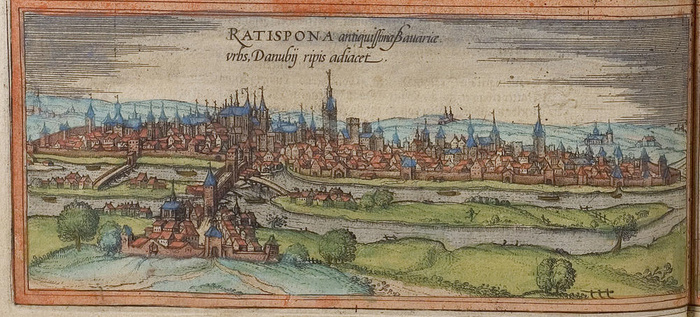 RATISPONA antiquissima Bauariæ
vrbs, Danubij ripis adiacet.